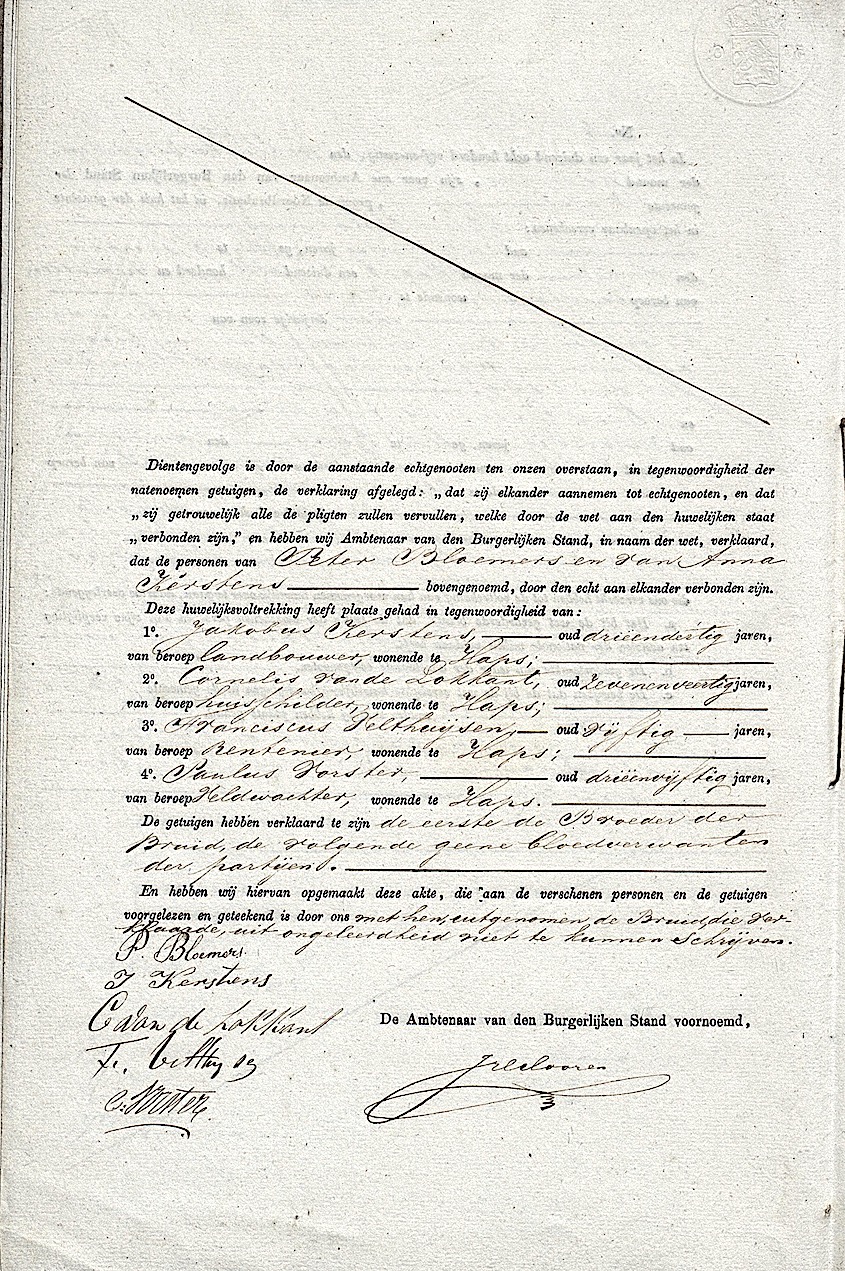 Dientengevolge is door de aanstaande echtgenooten ten onzen overstaan, in tegenwoordigheid der
natenoemen getuigen, de verklaring afgelegd: „dat zij elkander aannemen tot echtgenooten, en dat
„zij getrouwelijk alle de pligten zullen vervullen, welke door de wet aan den huwelijken staat
„verbonden zijn,” en hebben wij Ambtenaar van den Burgerlijken Stand, in naam der wet, verklaard,
dat de personen van Peter Bloemers en van Anna
Kerstens bovengenoemd, door den echt aan elkander verbonden zijn.
Deze huwelijksvoltrekking heeft plaats gehad in tegenwoordigheid van:
1º. Jakobus Kerstens, oud drieendertig jaren,
van beroep landbouwer, wonende te Haps;
2º. Cornelis vande Lokkant, oud zevenenveertig jaren,
van beroep huisschilder, wonende te Haps;
3º. Franciscus Velthuijsen, oud vijftig jaren,
van beroep Rentenier, wonende te Haps;
4º. Paulus Vorster, oud drieënvijftig jaren,
van beroep Veldwachter, wonende te Haps.
De getuigen hebben verklaard te zijn de eerste de Broeder der
Bruid, de volgende geene bloedverwanten
der partijen.
En hebben wij hiervan opgemaakt deze akte, die aan de verschenen personen en de getuigen
voorgelezen en geteekend is door ons met hen, uitgenomen de Bruid, die ver-
klaarde, uit ongeleerdheid niet te kunnen schrijven.
P. Bloemers
J Kerstens
C van de Lokkant
De Ambtenaar van den Burgerlijken Stand voornoemd,
Fr.
Vorster